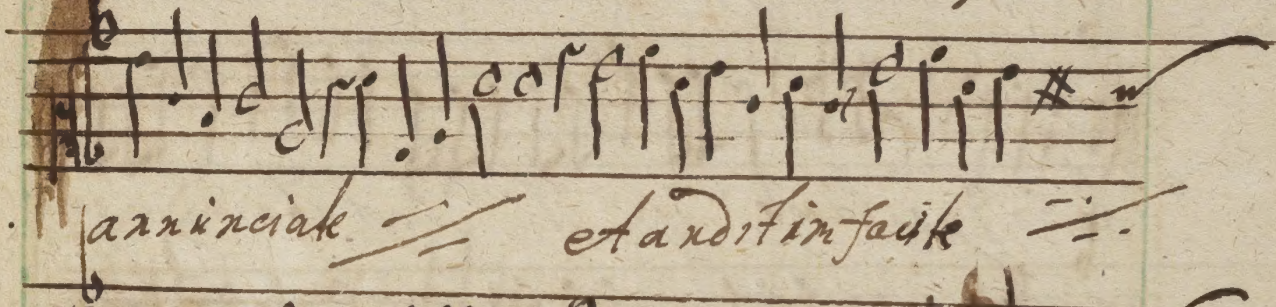 annunciate
et auditum facite